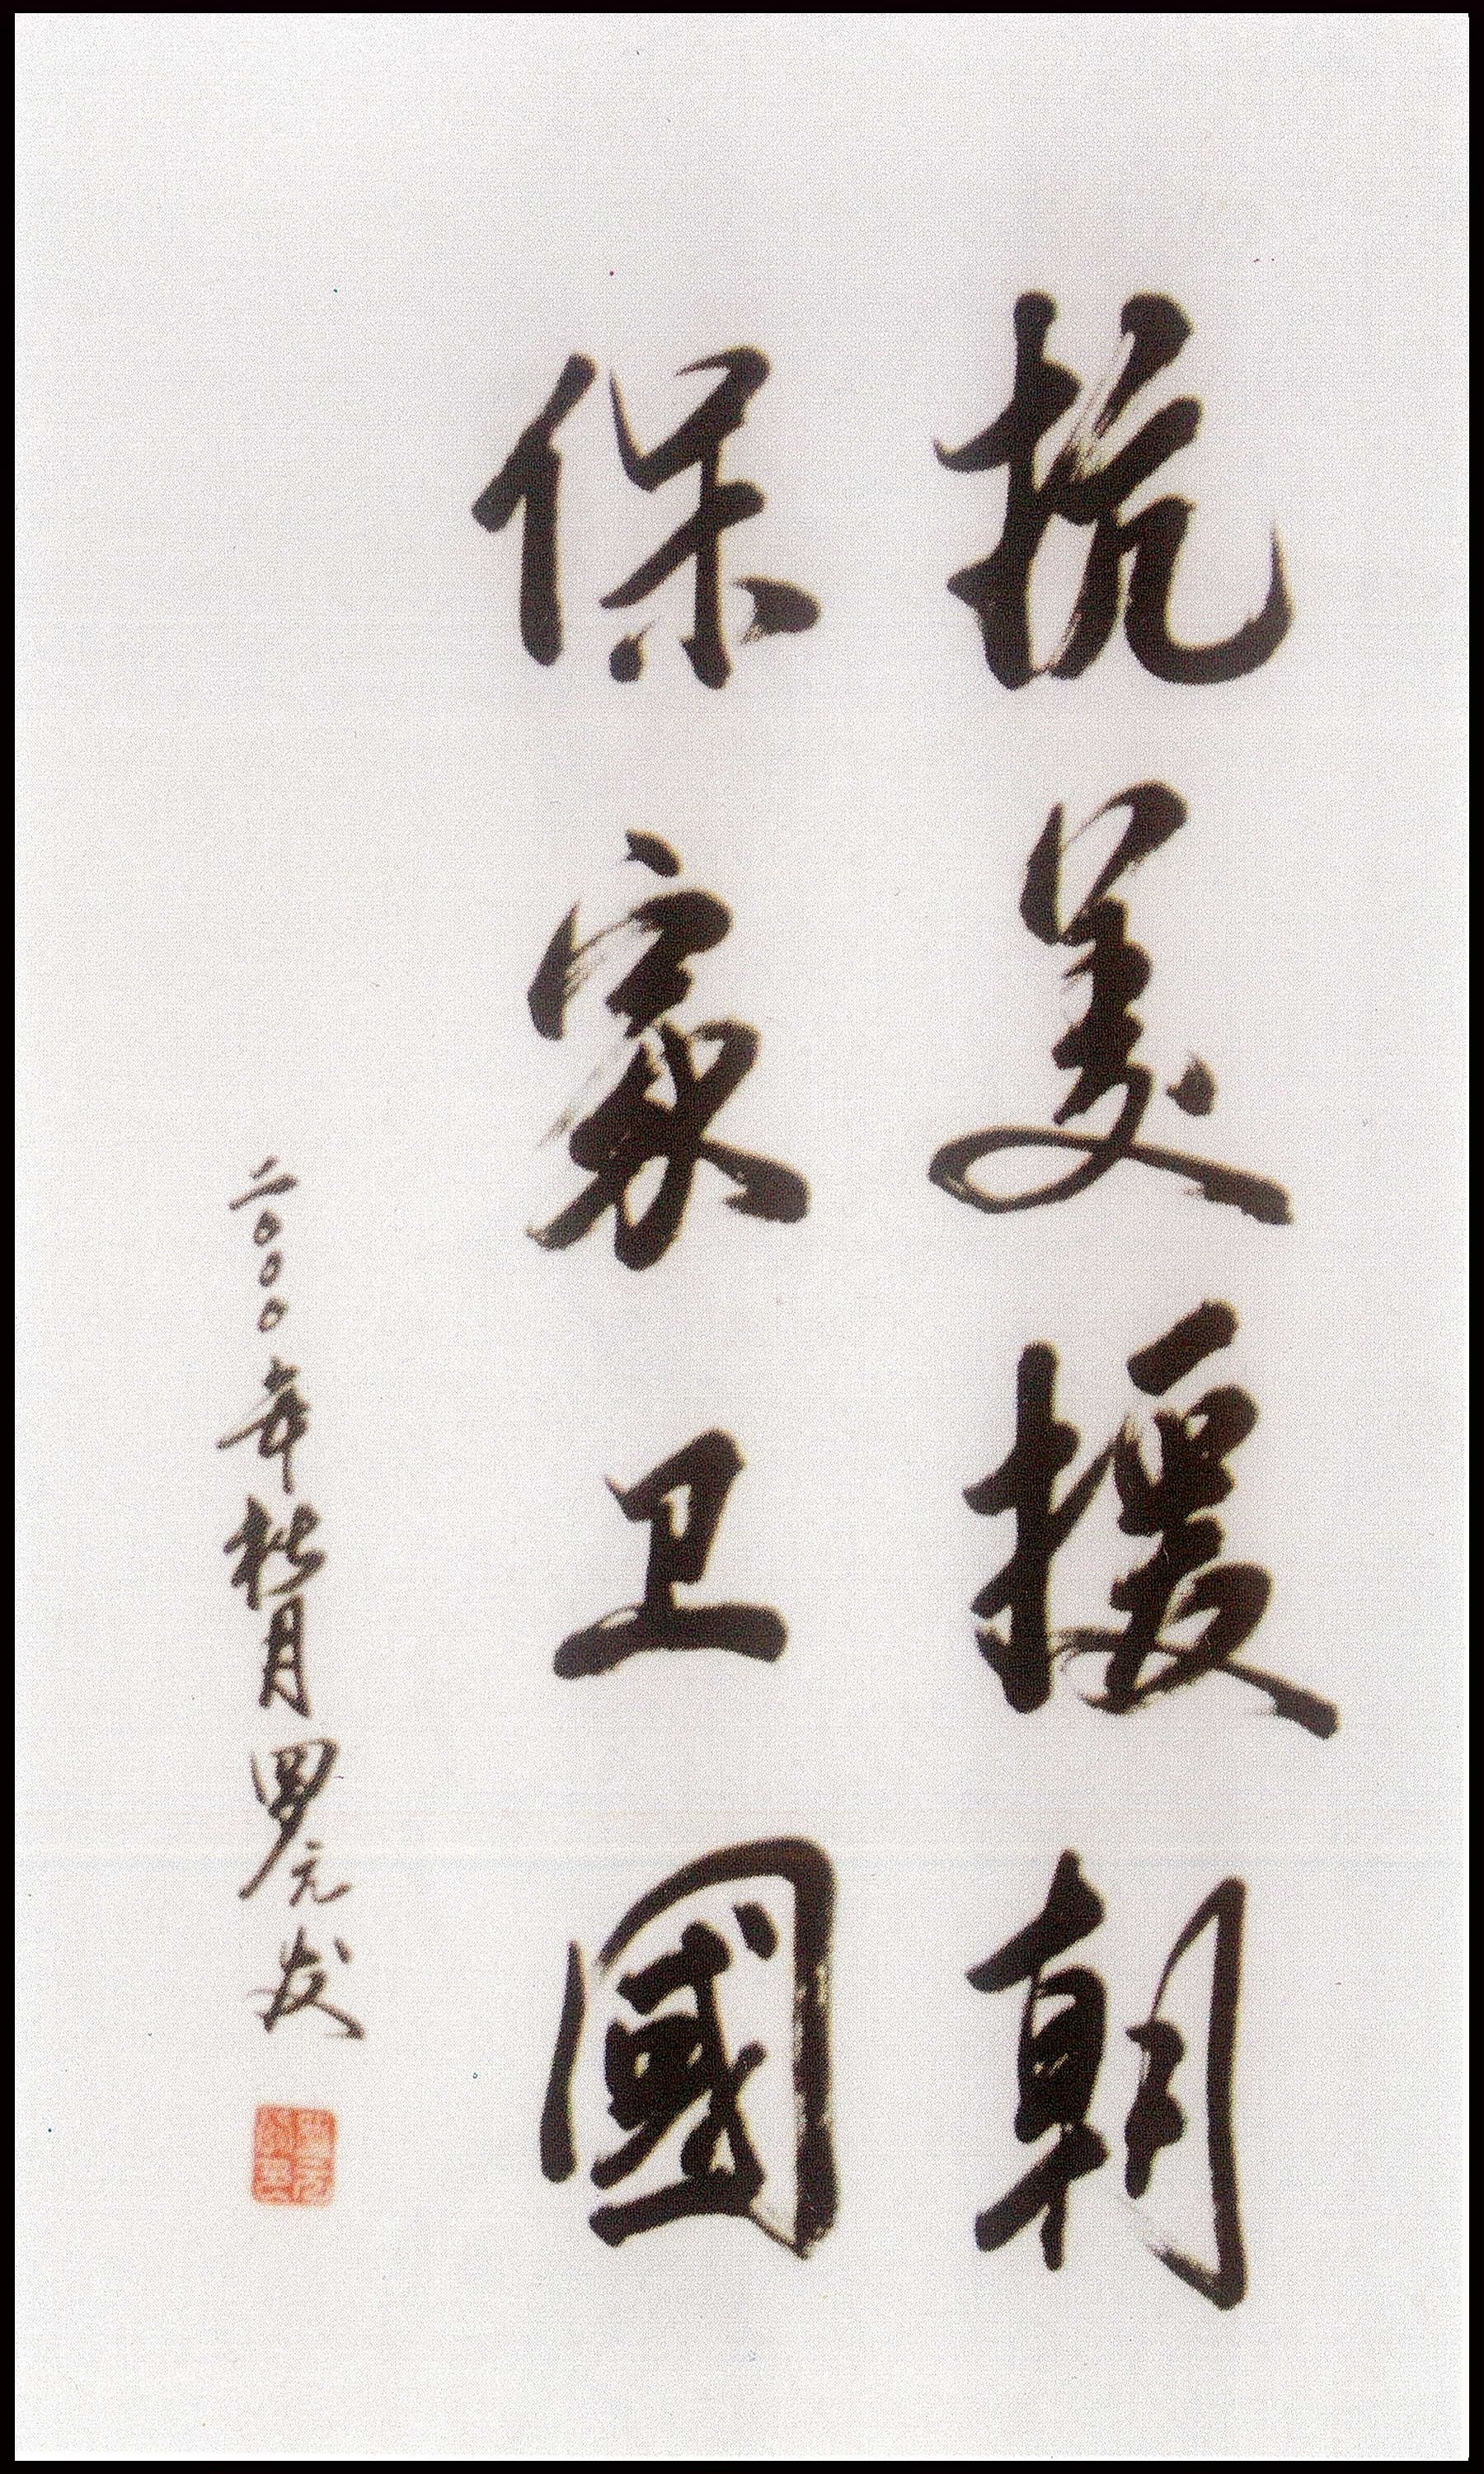 抗美援朝
保家卫國
二〇〇〇年桃月 罗元发